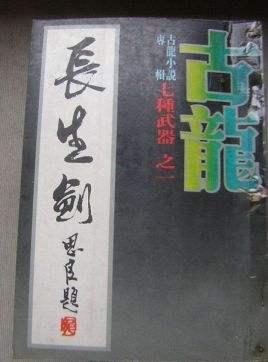 古龍
古龍小説
專輯
七種武器 之一
長生劍
思良題